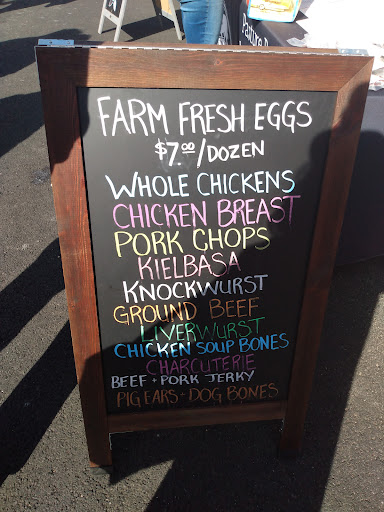 Pasture
FARM FRESH EGGS
$7.00/DOZEN
WHOLE CHICKENS
CHICKEN BREAST
PORK CHOPS
KIELBASA
KNOCKWURST
GROUND BEEF
LIVERWURST
CHICKEN SOUP BONES
CHARCUTERIE
BEEF + PORK JERKY
PIG EARS + DOG BONES